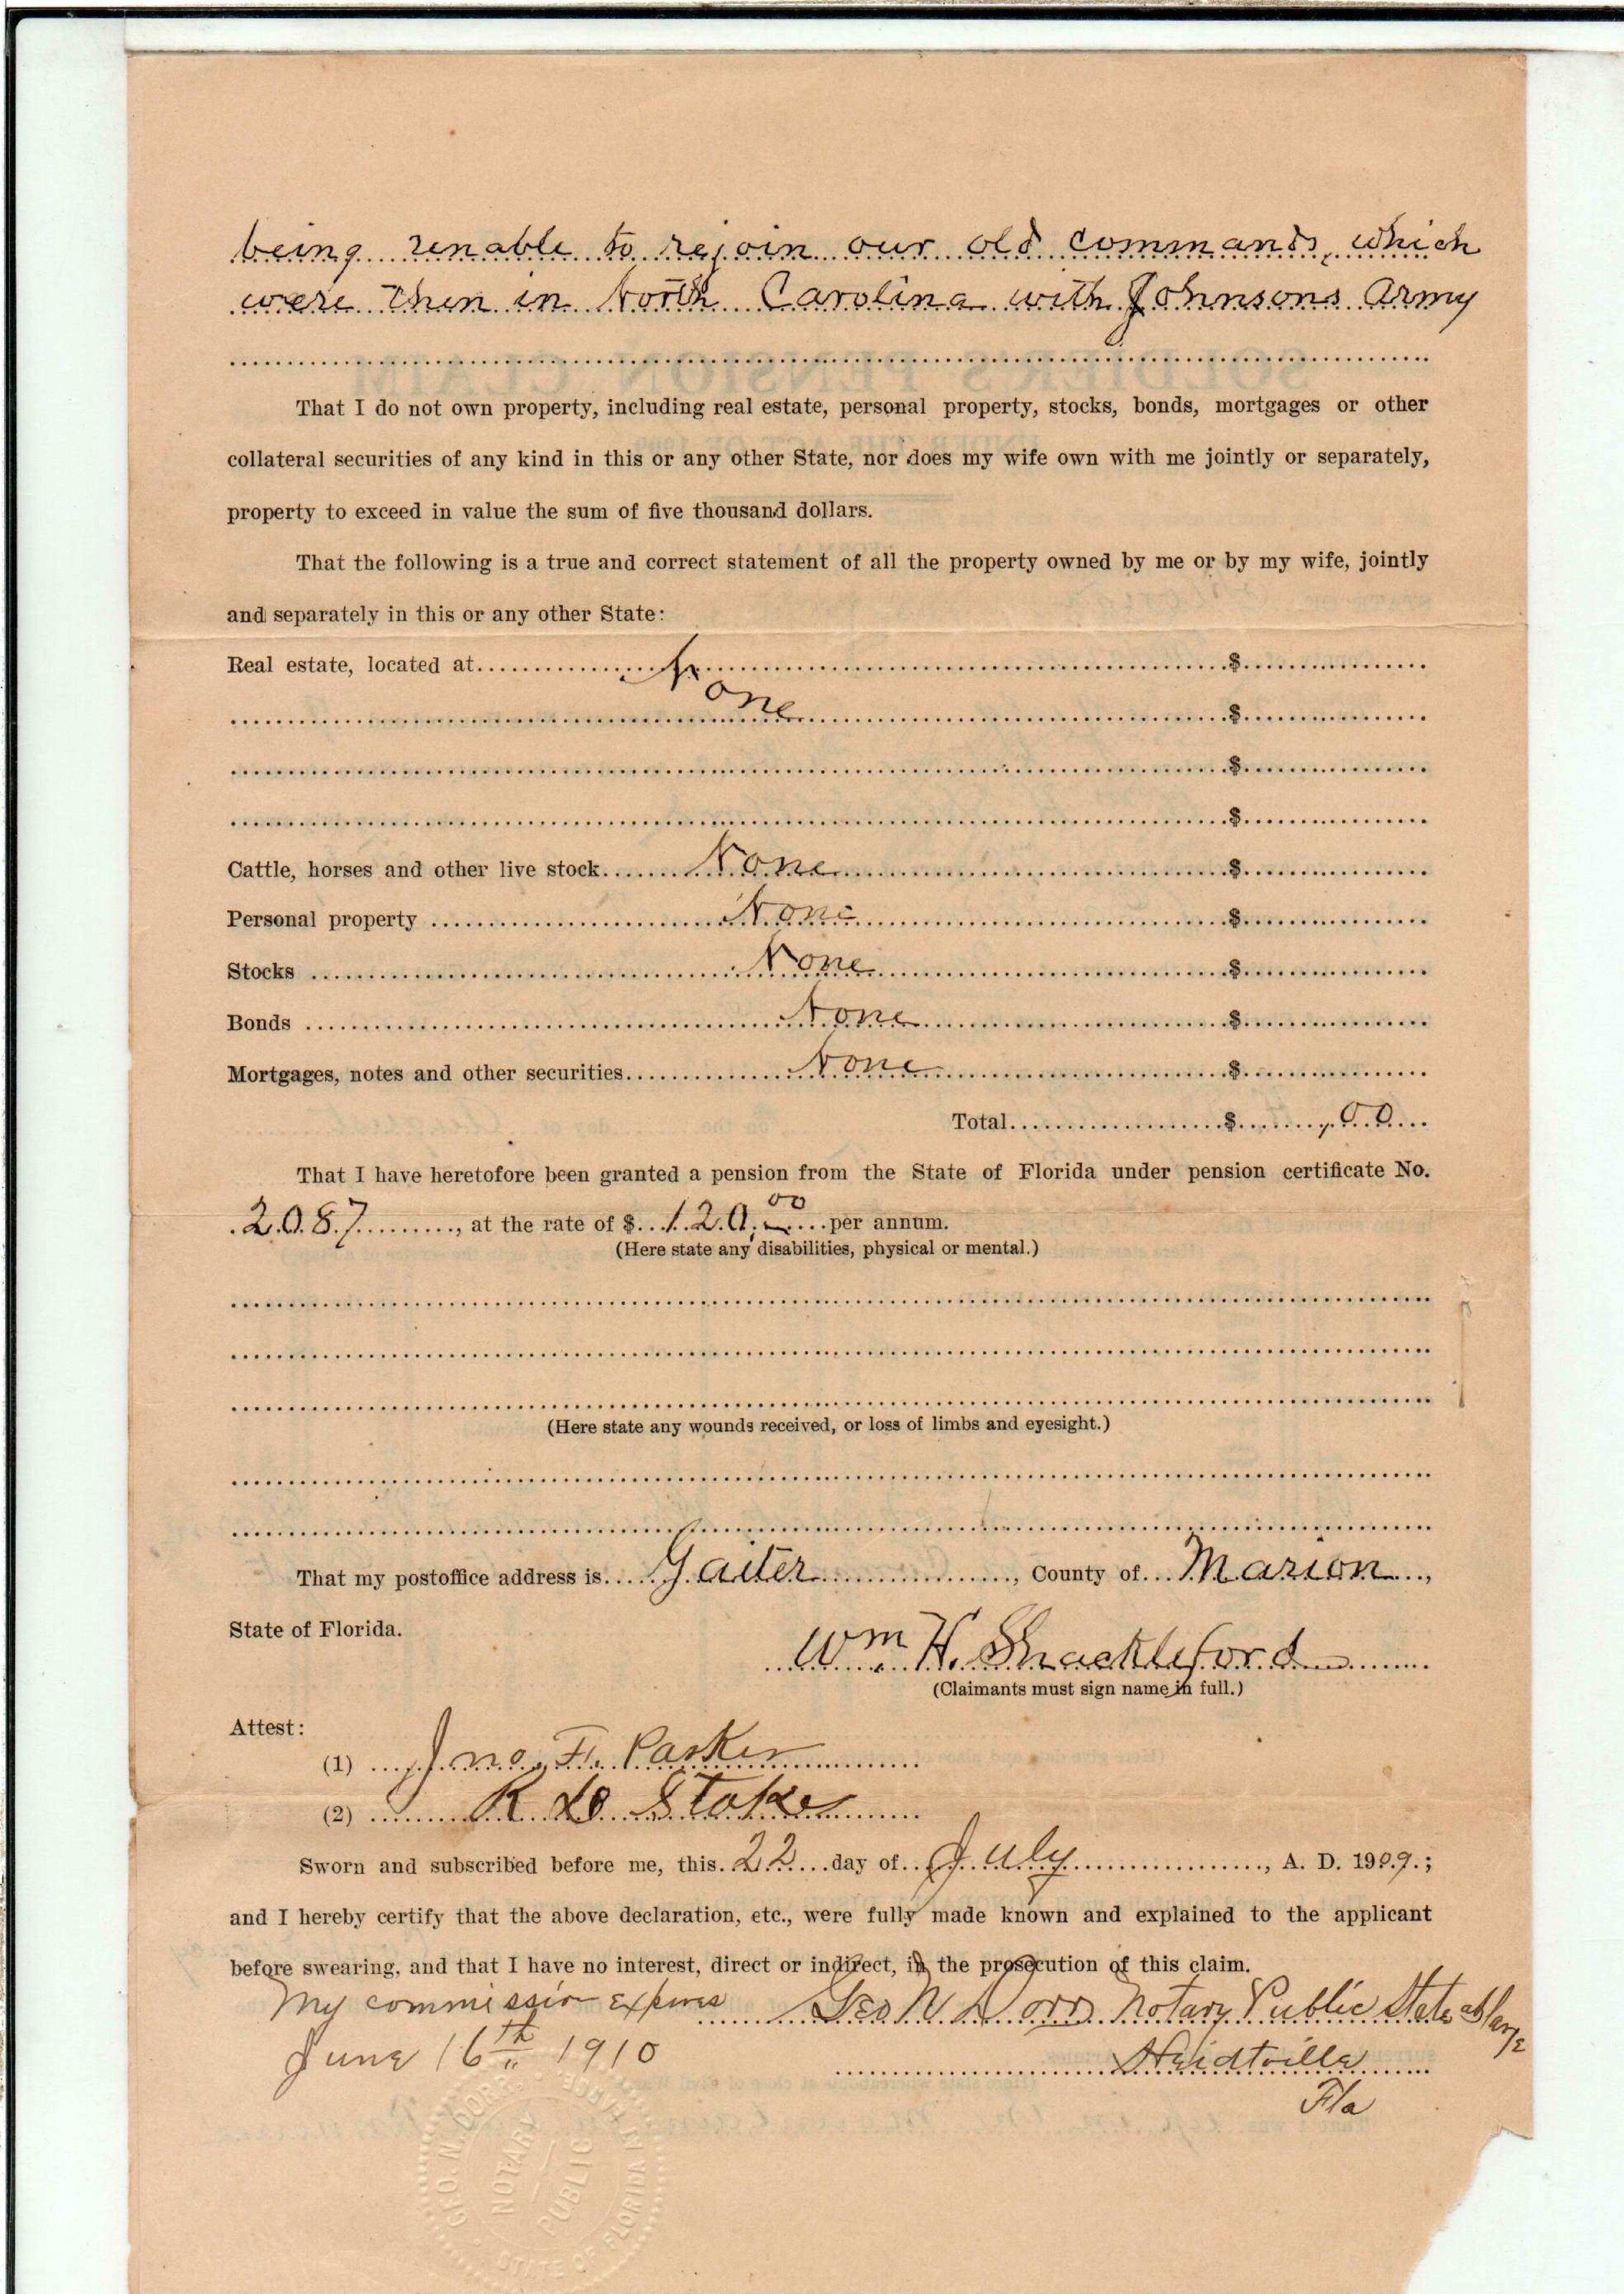 being unable to rejoin our old commands, which
were then in North Carolina with Johnsons Army
That I do not own property, including real estate, personal property, stocks, bonds, mortgages or other
collateral securities of any kind in this or any other State, nor does my wife own with me jointly or separately,
property to exceed in value the sum of five thousand dollars.
That the following is a true and correct statement of all the property owned by me or by my wife, jointly
and separately in this or any other State:
Real estate, located at None $
$
$
$
Cattle, horses and other live stock None $
Personal property None $
Stocks None $
Bonds None $
Mortgages, notes and other securities None $
Total $ ,00
That I have heretofore been granted a pension from the State of Florida under pension certificate No.
2087, at the rate of $ 120.00 per annum.
(Here state any disabilities, physical or mental.)
(Here state any wounds received, or loss of limbs and eyesight.)
That my postoffice address is Gaiter, County of Marion,
State of Florida.
Wm H. Shackleford
(Claimants must sign name in full.)
Attest:
(1) Jno. F. Parker
(2) R Stokes
Sworn and subscribed before me, this 22 day of July, A. D. 1909.;
and I hereby certify that the above declaration, etc., were fully made known and explained to the applicant
before swearing, and that I have no interest, direct or indirect, in the prosecution of this claim.
My commission Expires Geo N Dorr Notary Public State at large
June 16th 1910 Heidtville
Fla
GEO. N. DORR
NOTARY
PUBLIC
STATE OF FLORIDA